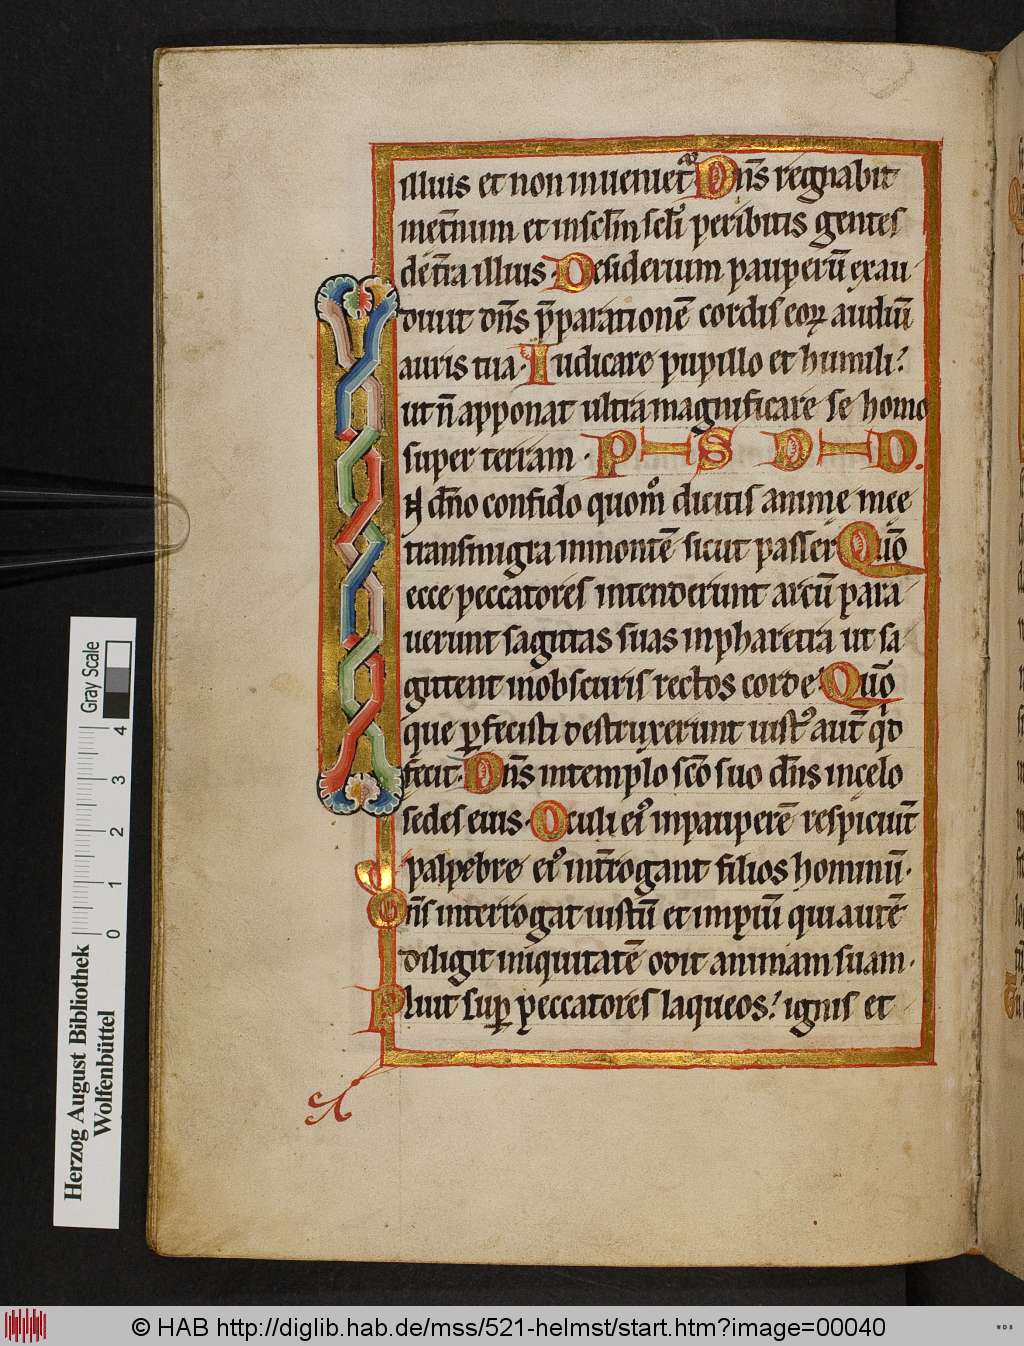 illius et non inueniet᷑ Dn̄s regnabit
inet̄num et insc̄lm sc̄li peribitis gentes
det̄ra illius · Desiderium pauperū exau
diuit dn̄s p̄parationē cordis eoꝝ audiuī
auris tua · Iudicare pupillo et humili :
ut n̄ apponat ultra magnificare se homo
super terram · PS DD.
N dn̄o confido quom̊ dicitis anime mee
transmigra inmontē sicut passer Quō
ecce peccatores intenderunt arcū para
uerunt sagittas suas inpharetra ut sa
gittent inobscuris rectos corde · Quō
que ꝑfecisti destruxerunt iust᷒ aut̄ qͥd
fecit · Dn̄s intemplo sc̄o suo dn̄s incelo
sedes eius · Oculi ei᷒ inpauperē respiciūt
palpebre ei᷒ int̄rogant filios hominū ·
Dn̄s interrogat iustū et impiū qui autē
diligit iniquitatē odit animam suam ·
Pluit suꝑ peccatores laqueos : ignis et
I
Herzog August Bibliothek
Wolfenbüttel
Gray Scale
0 1 2 3 4
© HAB http://diglib.hab.de/mss/521-helmst/start.htm?image=00040